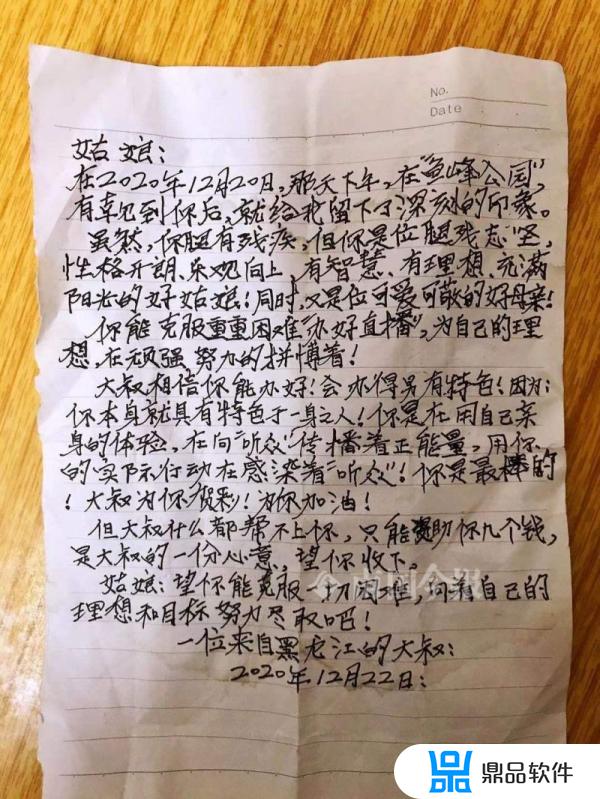 No.
Date
姑娘：
在2020年12月20日，那天下午，在“鱼峰公园”，
有幸见到你后，就给我留下了深刻的印象。
虽然，你腿有残疾，但你是位腿残志坚，
性格开朗、乐观向上，有智慧、有理想、充满
阳光的好姑娘！同时，又是位可爱可敬的好母亲！
你能克服重重困难“办好直播”，为自己的理
想，在顽强努力的拼博着！
大叔相信你能办好！会办得另有特色！因为：
你本身就具有特色于一身之人！你是在用自己亲
身的体验，在向“听众”传播着正能量，用你
的实际行动在感染着“听众”！你是最棒的
！大叔为你贺彩！为你加油！
但大叔什么都帮不上你，只能赞助你几个钱，
是大叔的一份心意，望你收下。
姑娘：望你能克服一切困难，向着自己的
理想和目标努力尽取吧！
一位来自黑龙江的大叔：
2020年12月22日：
南国今报
鼎品软件